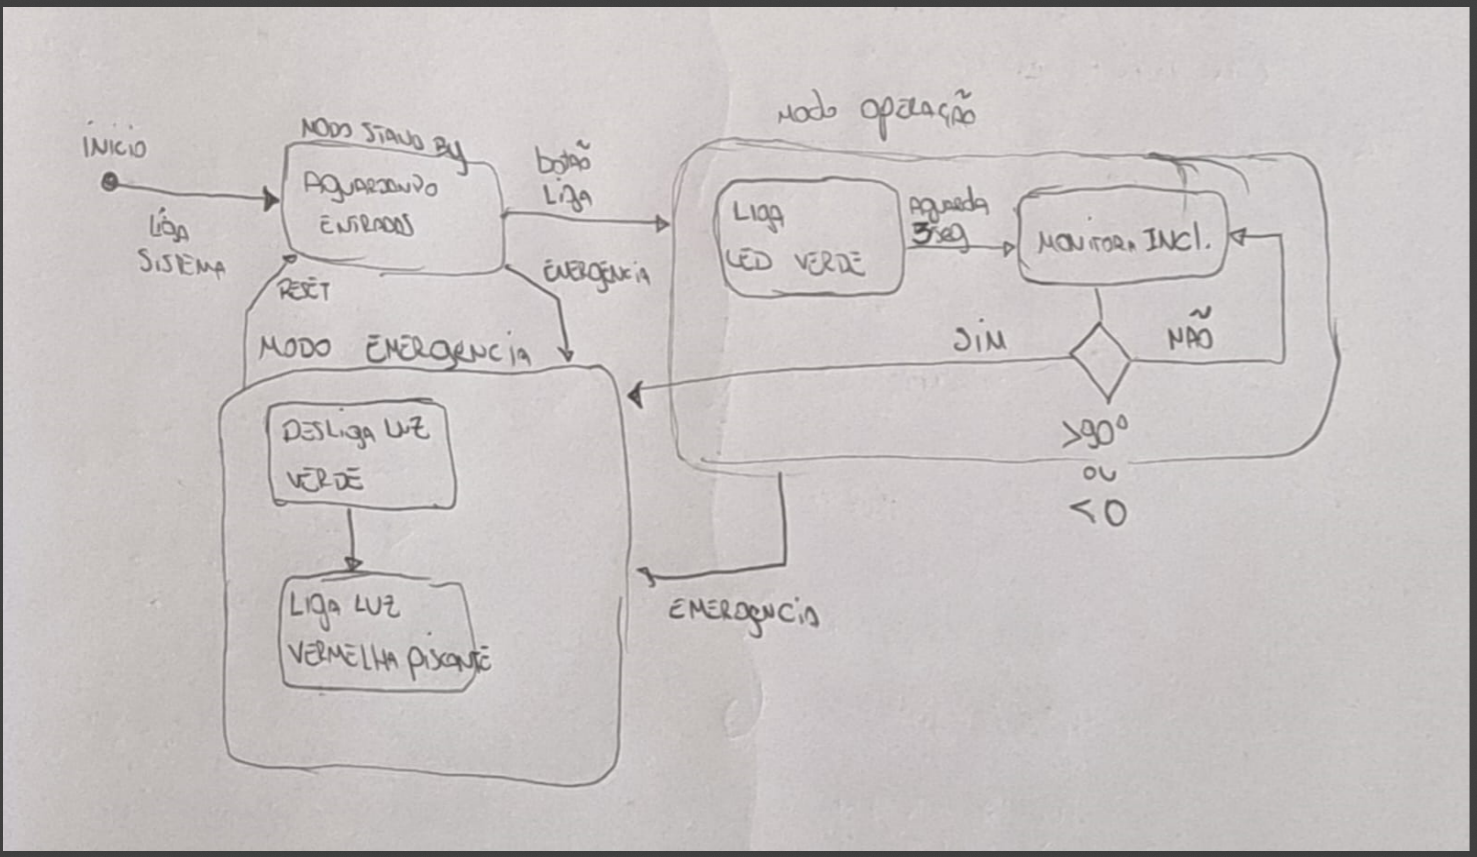 INICIO
LIGA
SISTEMA
MODO STAND BY
AGUARDANDO
ENTRADAS
botão
Liga
RESET
EMERGENCIA
Modo operação
Liga
LED VERDE
Aguarda
3seg
MONITORA INCL.
SIM
NÃO
>90°
ou
<0
MODO EMERGENCIA
DESLiga LUZ
VERDE
LIga LUZ
VERMELHA PISCANTE
EMERgENCiA